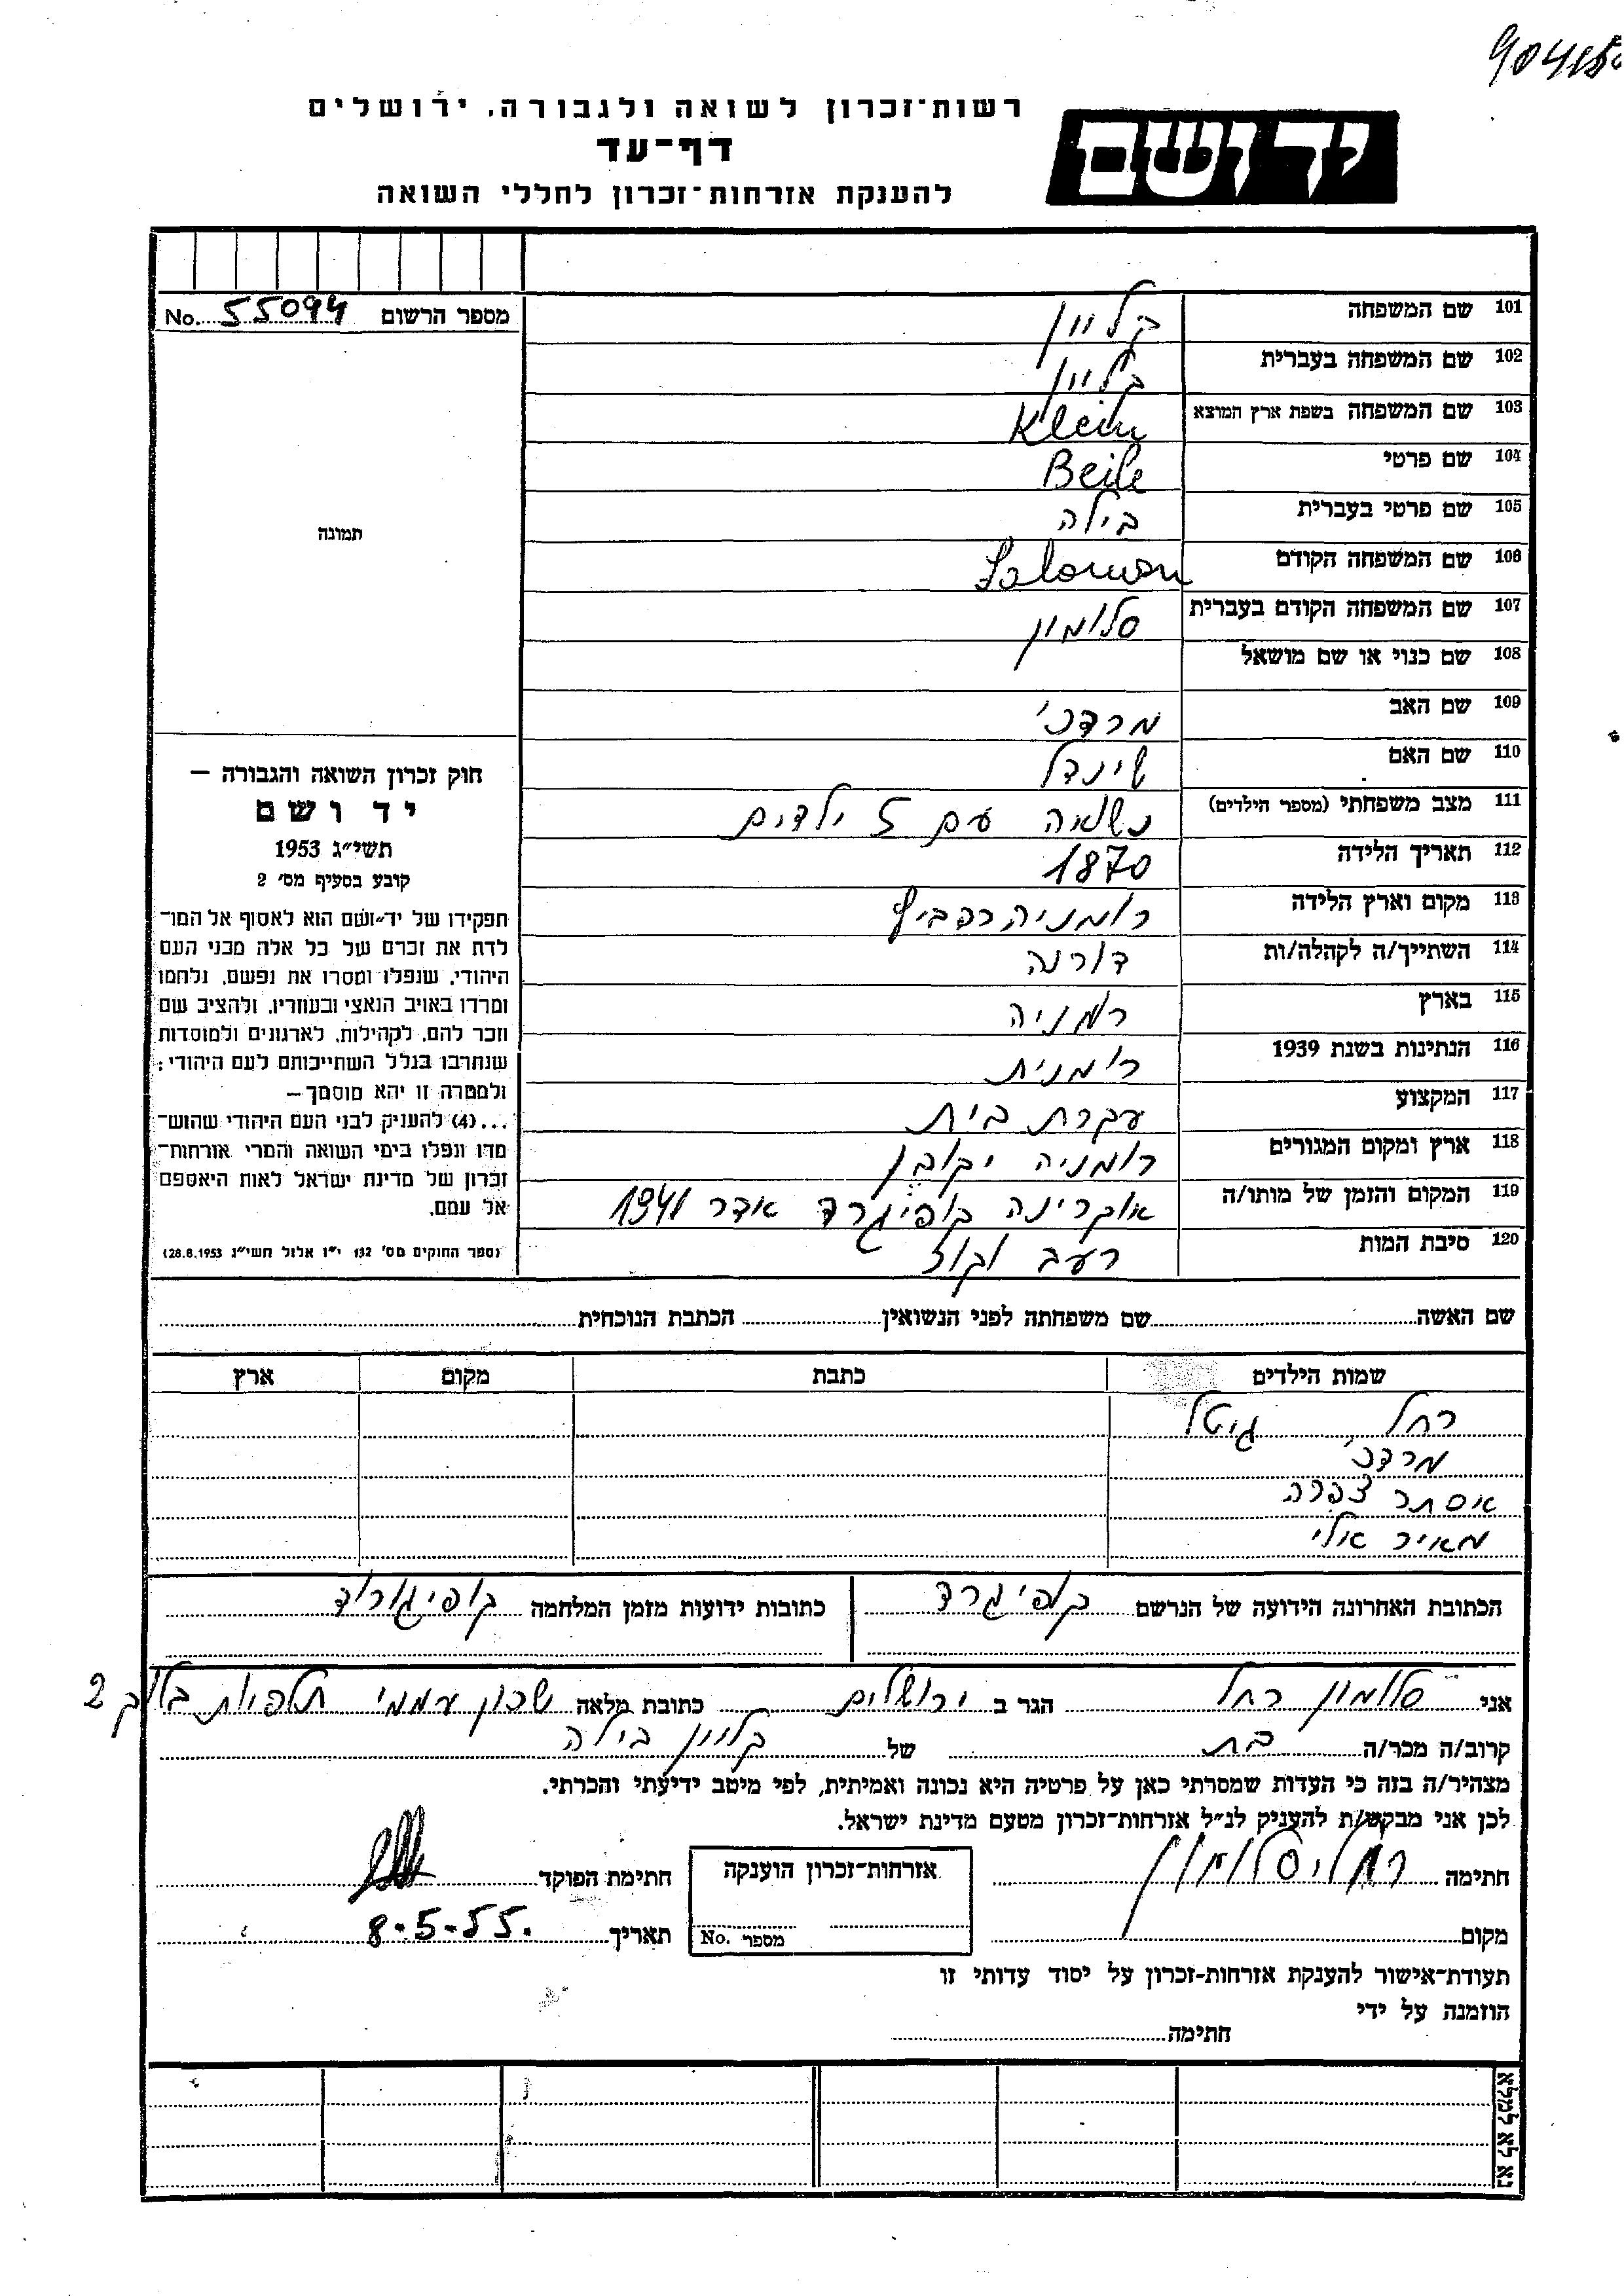 90415
רשות־זכרון לשואה ולגבורה, ירושלים
דף־עד
להענקת אזרחות־זכרון לחללי השואה
יד ושם
מספר הרשום No. 55094
תמונה
101 שם המשפחה קליין
102 שם המשפחה בעברית קליין
103 שם המשפחה בשפת ארץ המוצא Klein
104 שם פרטי Beile
105 שם פרטי בעברית בילה
106 שם המשפחה הקודם Salomon
107 שם המשפחה הקודם בעברית סלומון
108 שם כנוי או שם מושאל
109 שם האב מרדכי
110 שם האם שינדל
111 מצב משפחתי (מספר הילדים) נשואה עם 5 ילדים
112 תאריך הלידה 1870
113 מקום וארץ הלידה רומניה
114 השתייך/ה לקהלה/ות דורנה
115 בארץ רומניה
116 הנתינות בשנת 1939 רומנית
117 המקצוע עקרת בית
118 ארץ ומקום המגורים רומניה יקובן
119 המקום והזמן של מותו/ה אוקרינה קופיגרד אדר 1941
120 סיבת המות רעב וקור
חוק זכרון השואה והגבורה —
יד ושם
תשי״ג 1953
קובע בסעיף מס׳ 2
תפקידו של יד־ושם הוא לאסוף אל המו־
לדת את זכרם של כל אלה מבני העם
היהודי, שנפלו ומסרו את נפשם, נלחמו
ומרדו באויב הנאצי ובעוזריו, ולהציב שם
וזכר להם, לקהילות, לארגונים ולמוסדות
שנחרבו בגלל השתייכותם לעם היהודי;
ולמטרה זו יהא מוסמך—
...(4) להעניק לבני העם היהודי שהוש־
מדו ונפלו בימי השואה והמרי אזרחות־
זכרון של מדינת ישראל לאות היאספם
אל עמם.
(ספר החוקים מס׳ 132 י״ז אלול תשי״ג 28.8.1953)
שם האשה שם משפחתה לפני הנשואין הכתבת הנוכחית
שמות הילדים כתבת מקום ארץ
רחל גיטל
מרדכי
אסתר צפרה
מאיר אלי
הכתובת האחרונה הידועה של הנרשם קופיגרד כתובות ידועות מזמן המלחמה קופיגורוד
אני סלומון רחל הגר ב ירושלים כתובת מלאה שכון עממי תלפיות בלוק 2
קרוב/ה מכר/ה בת של קליין בילה
מצהיר/ה בזה כי העדות שמסרתי כאן על פרטיה היא נכונה ואמיתית, לפי מיטב ידיעתי והכרתי.
לכן אני מבקש/ת להעניק לנ״ל אזרחות־זכרון מטעם מדינת ישראל.
חתימה רחל סלומון אזרחות־זכרון הוענקה חתימת הפוקד
מקום מספר No. תאריך 8-5-55.
תעודת־אישור להענקת אזרחות-זכרון על יסוד עדותי זו
הוזמנה על ידי
חתימה
נא לא למלא